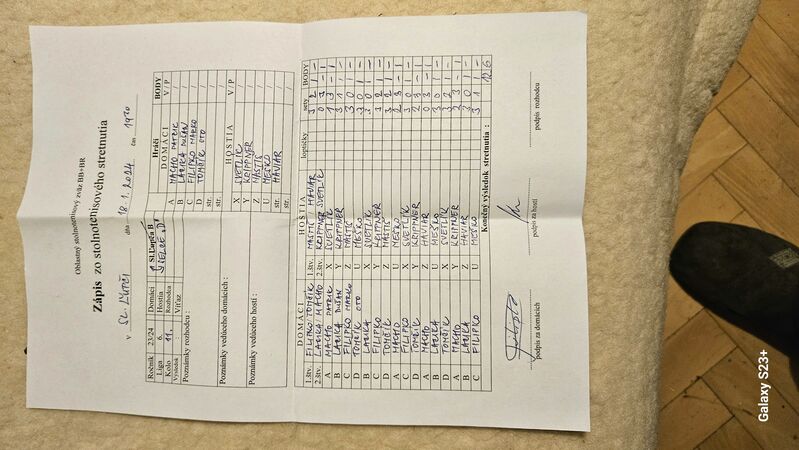 Oblastný stolnotenisový zväz BB+BR
Zápis zo stolnotenisového stretnutia
v SL. ĽUPČI dňa 18.1.2024 čas 1930
Ročník 23/24 Domáci Sl.Ľupča B
Liga 6. Hostia SELCE "D"
Kolo 11. Rozhodca
Výsledok : Víťaz
Poznámky rozhodcu :
Poznámky vedúceho domácich :
Poznámky vedúceho hostí :
Hráči BODY
DOMÁCI V / P
A MACHO PATRIK /
B LAUKA DUŠAN /
C FILIPKO MARKO /
D TOMČÍK OTO /
str. /
str. /
HOSTIA V / P
X SVETLÍK /
Y KRIPPNER /
Z MASTIŠ /
U MEŠKO /
str. HAVIAR /
str. /
DOMÁCI HOSTIA loptičky sety BODY
1.štv. FILIPKO/TOMČÍK 1.štv. MASTIŠ / HAVIAR 3 2 1 -
2.štv. LAUKA/MACHO 2.štv. KRIPPNER SVETLÍK 0 3 - 1
A MACHO PATRIK X SVETLÍK 1 3 - 1
B LAUKA DUŠAN Y KRIPPNER 3 1 1 -
C FILIPKO MARKO Z MASTIŠ 3 0 1 -
D TOMČÍK OTO U MEŠKO 3 0 1 -
B LAUKA X SVETLÍK 3 0 1 -
C FILIPKO Y KRIPPNER 3 2 1 -
D TOMČÍK Z MASTIŠ 3 2 1 -
A MACHO U MEŠKO 2 3 - 1
C FILIPKO X SVETLÍK 3 0 1 -
D TOMČÍK Y KRIPPNER 2 3 - 1
A MACHO Z HAVIAR 0 3 - 1
B LAUKA U MEŠKO 3 0 1 -
D TOMČÍK X SVETLÍK 3 2 1 -
A MACHO Y KRIPPNER 2 3 - 1
B LAUKA Z HAVIAR 3 0 1 -
C FILIPKO U MEŠKO 3 1 1 -
Konečný výsledok stretnutia : 12 6
podpis za domácich podpis za hostí podpis rozhodcu
Galaxy S23+